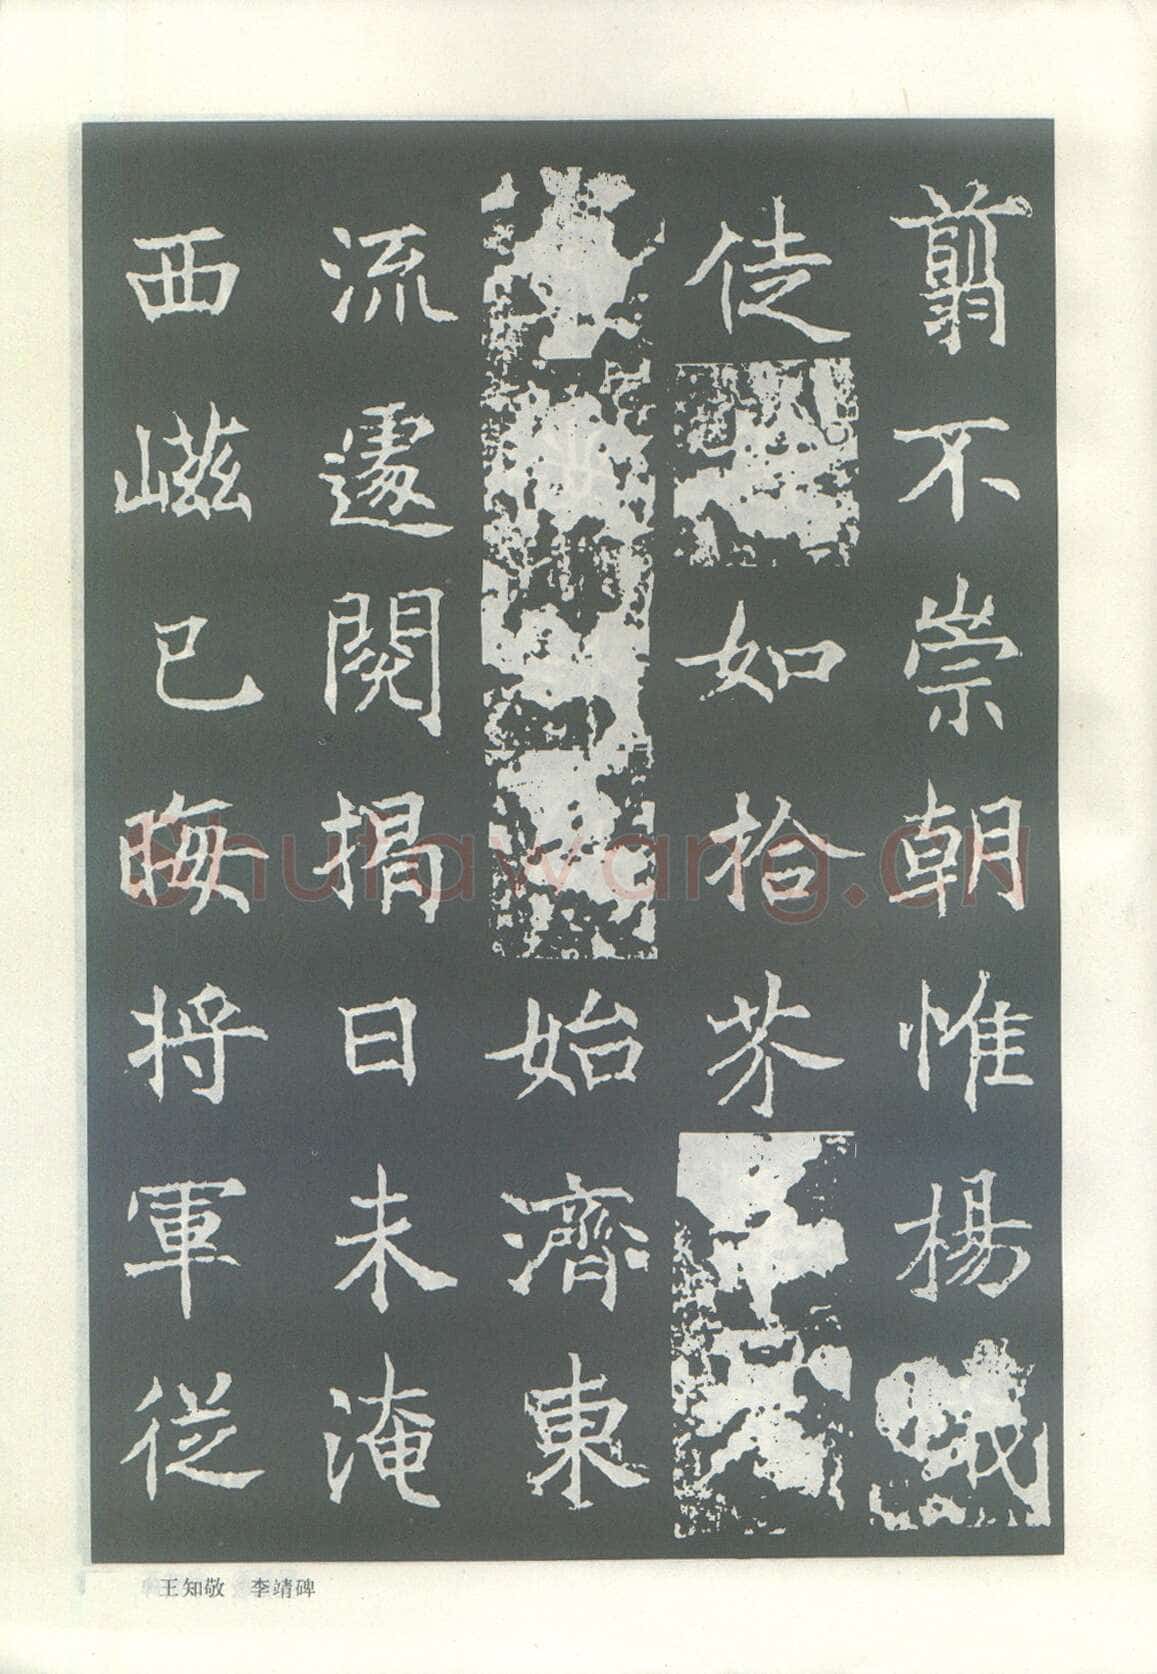 翦不崇朝惟楊
徒如拾芥
始濟東
流遽閱揭日未淹
西嵫已晦將軍從
王知敬 李靖碑
shufawang.cn